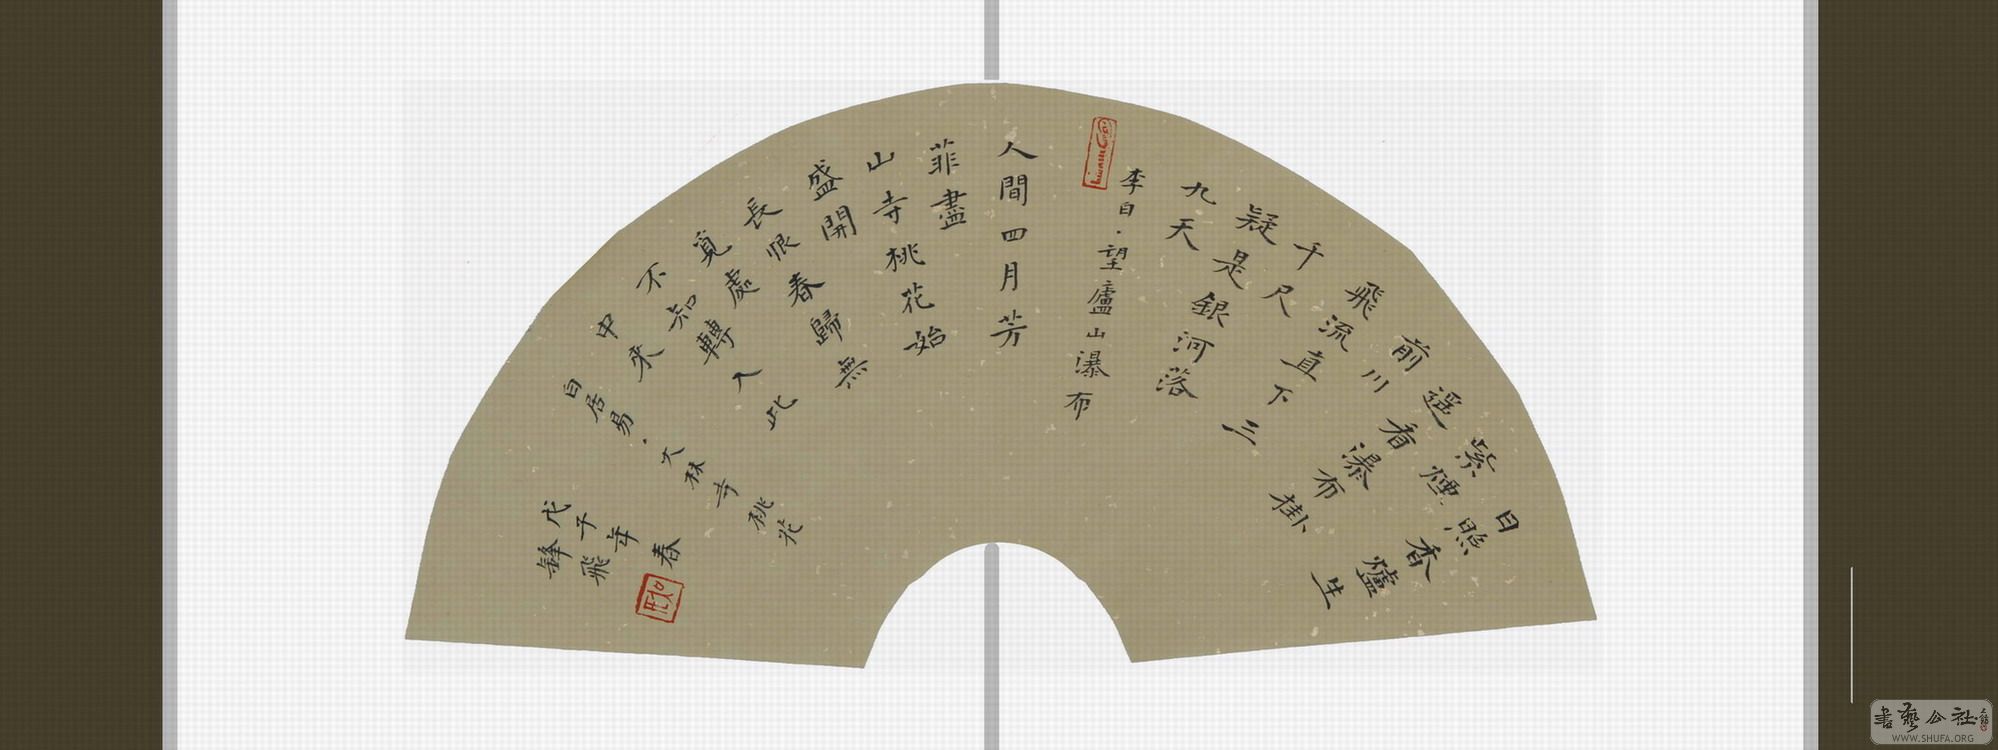 日照香爐生
紫煙
遙看瀑布掛
前川
飛流直下三
千尺
疑是銀河落
九天
李白·望廬山瀑布
人間四月芳
菲盡
山寺桃花始
盛開
長恨春歸無
覓處
不知轉入此
中來
白居易·大林寺桃花
戊子年春
鋒飛
書藝公社
WWW.SHUFA.ORG